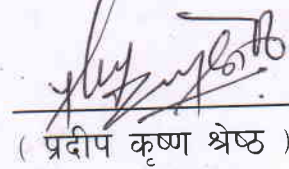 ( प्रदीप कृष्ण श्रेष्ठ )